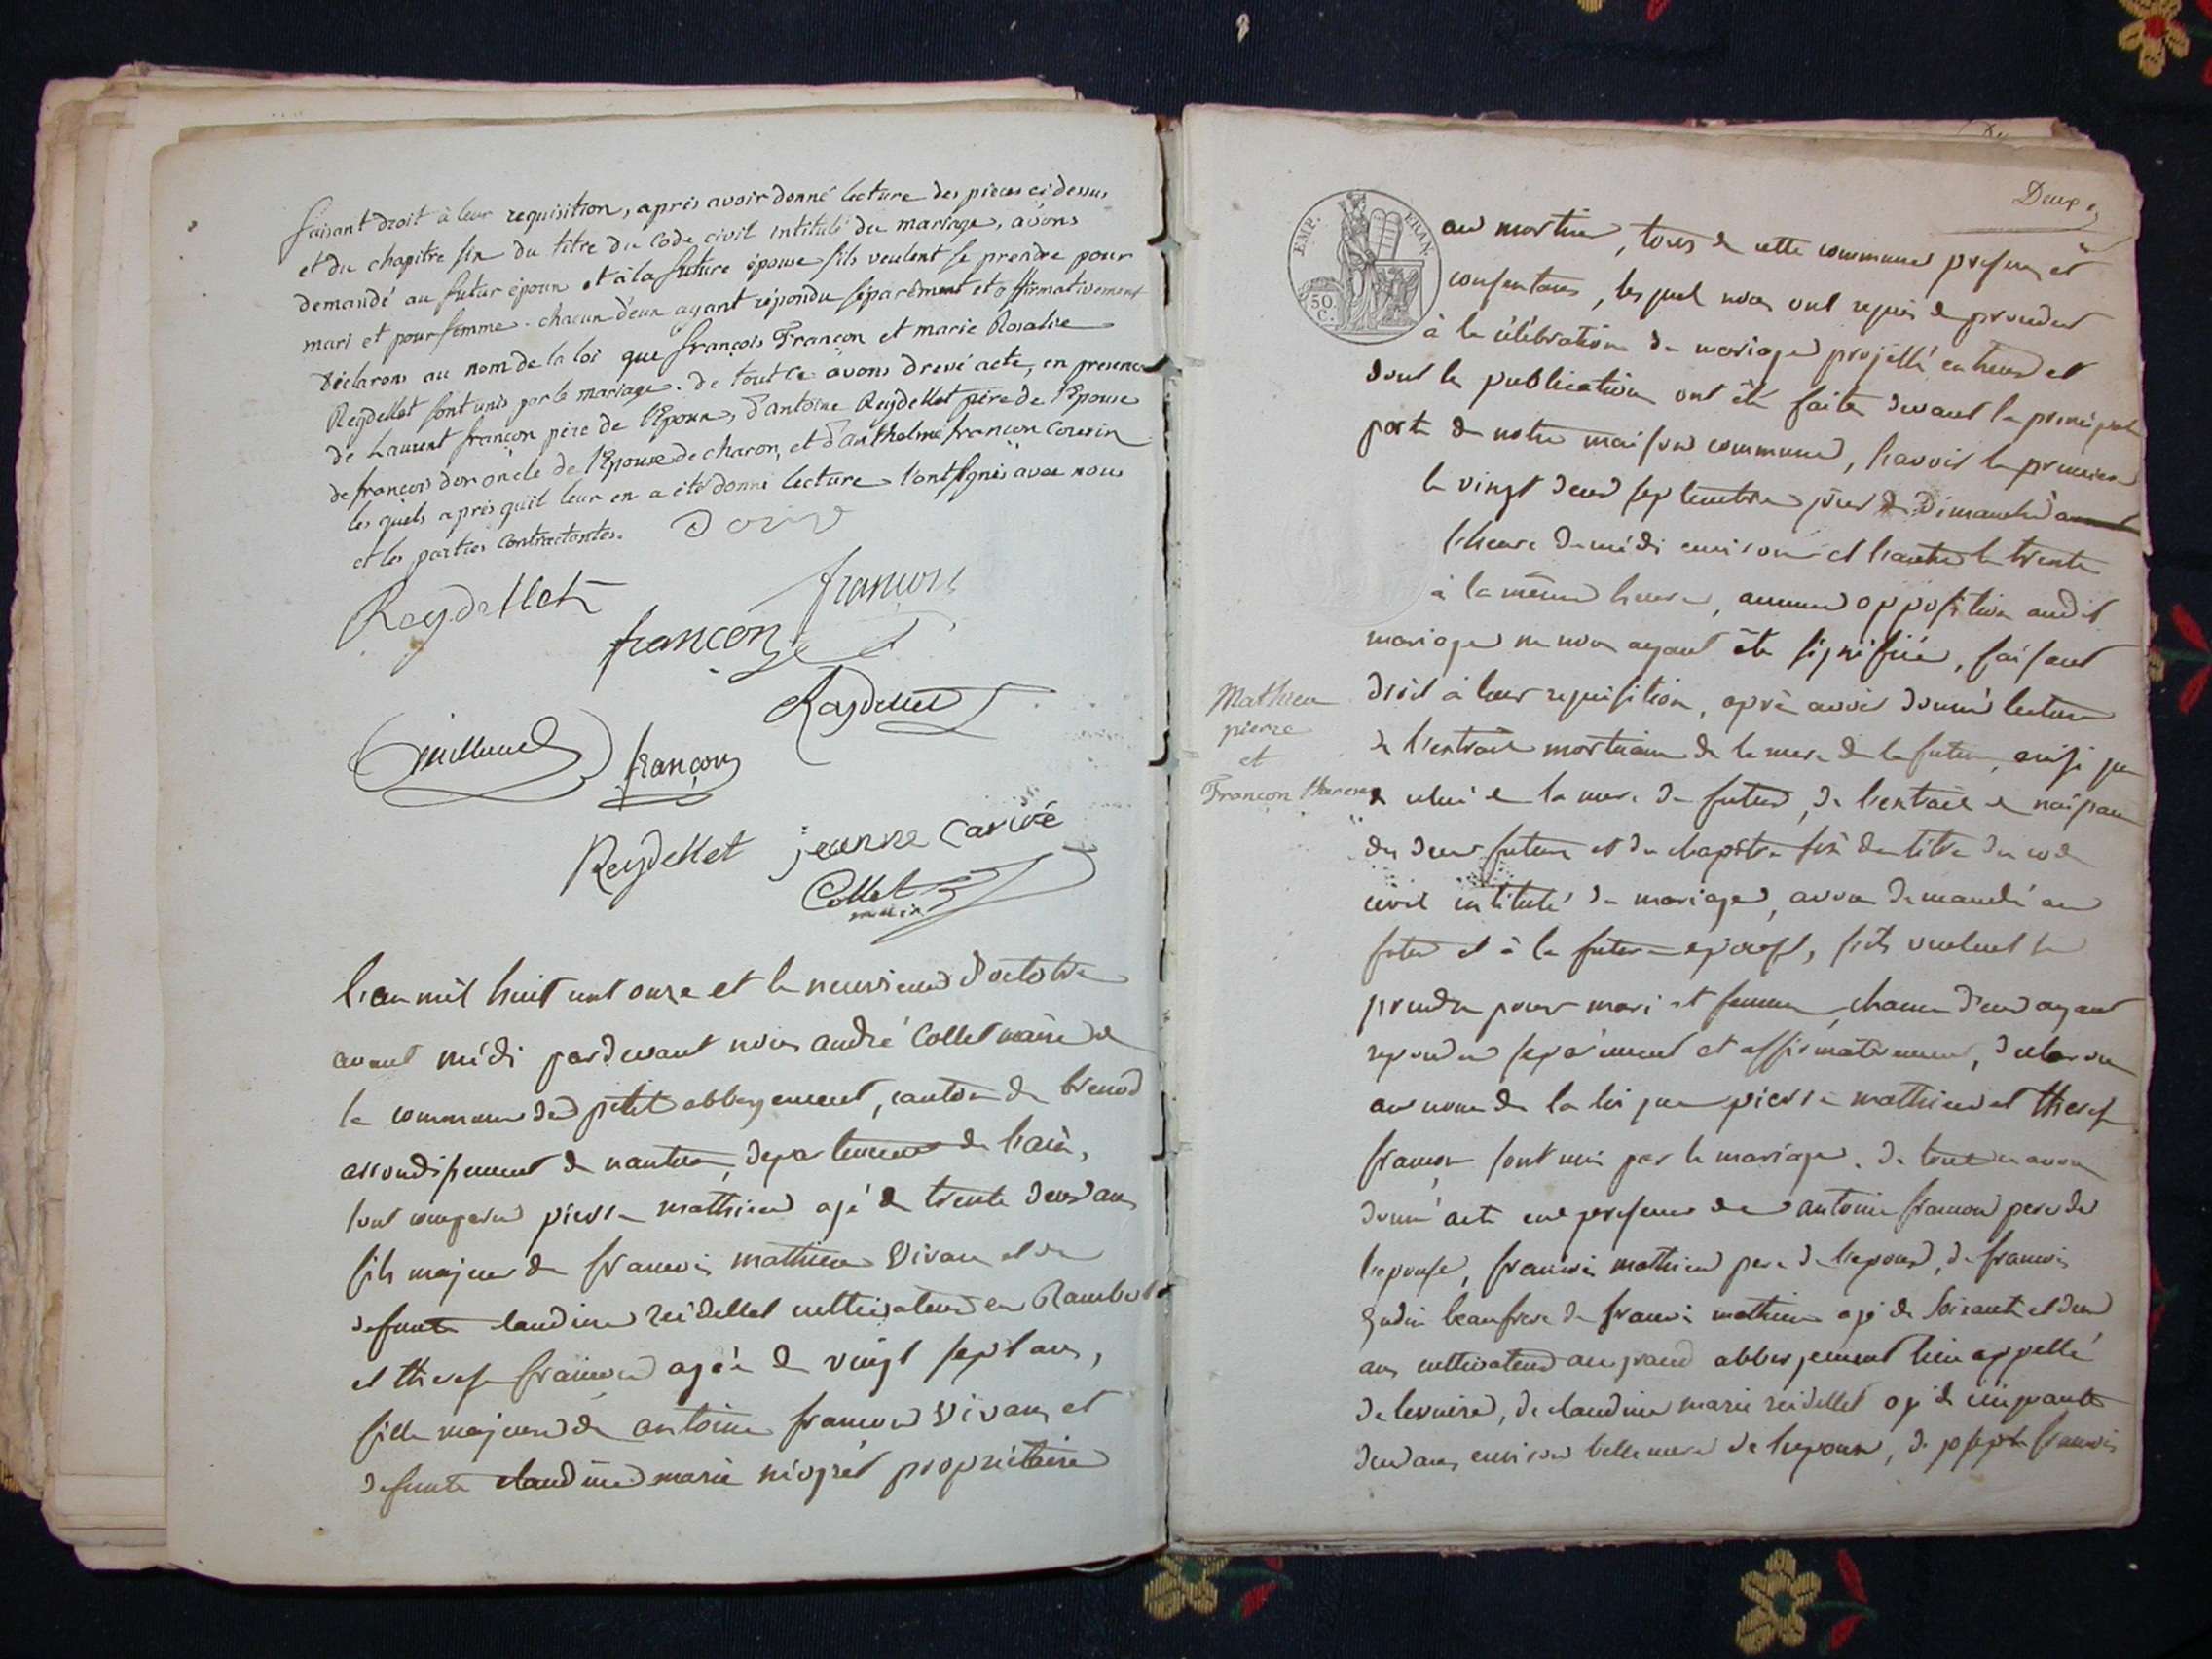 faisant droit à leur requisition, après avoir donné lecture des pièces ci dessus
et du chapitre six du titre du Code civil intitulé du mariage, avons
demandé au futur époux et à la future épouse s'ils veulent se prendre pour
mari et pour femme. chacun d'eux ayant répondu séparément et affirmativement
déclarons au nom de la loi que françois Françon et marie Rosalie
Reydellet sont unis par le mariage. de tout ce avons dressé acte, en presence
de Laurent françon père de l'Epoux, d'antoine Reydellet père de l'Epouse
de françois dor oncle de l'Epouse de charon, et d'anthelme françon Cousin
les quels après qu'il leur en a été donné lecture l'ont signés avec nous
et les parties Contractantes.
Reydellet
françon
françon
Reydellet
françon
Reydellet jeanne Carrié
Collet
maire
l'an mil huit cent onze et le neuvieme d'octobre
avant midi pardevant nous andré Collet maire de
la commune du petit abbergement, canton de brenod
arrondissement de nantua, departement de l'ain,
sont comparus pierre mathieu agé de trente deux ans
fils majeur de francois mathieu vivant et de
defunte claudine reidellet cultivateur en Rambert
et therese francon agée de vingt sept ans,
fille majeure de antoine francon vivant et
defunte claudine marie niogret propriétaire
Deux
EMP. FRAN.
50.
C.
au mortier, tous de cette commune presens et
consentans, lesquels nous ont requis de proceder
à la célébration du mariage projetté entreux et
dont les publications ont été faites devant la principale
porte de notre maison commune, savoir la premiere
le vingt deux septembre jour de Dimanche à
l'heure de midi environ et l'autre le trente
à la même heure, aucune opposition audit
mariage ne nous ayant été signifiée, faisant
droit à leur requisition, après avoir donné lecture
de l'extrait mortuaire de la mere de la future, ainsi que
de celui de la mere du futur, de l'extrait de naissance
des deux futurs et du chapitre six du titre du code
civil intitulé du mariage, avons demandé au
futur et à la future epouse, s'ils veulent se
prendre pour mari et femme, chacun d'eux ayant
repondu separement et affirmativement, declarons
au nom de la loi que pierre mathieu et therese
francon sont unis par le mariage. de tout ce avons
donné acte en presence de antoine francon pere de
l'epouse, francois mathieu pere de l'epoux, de francois
beaufrere de francois mathieu agé de soixante et deux
ans cultivateur au grand abbergement lieu appellé
de claudine marie reidellet agé de cinquante
deux ans environ belle mere de l'epoux, de joseph francois
Mathieu
pierre
et
Françon therese